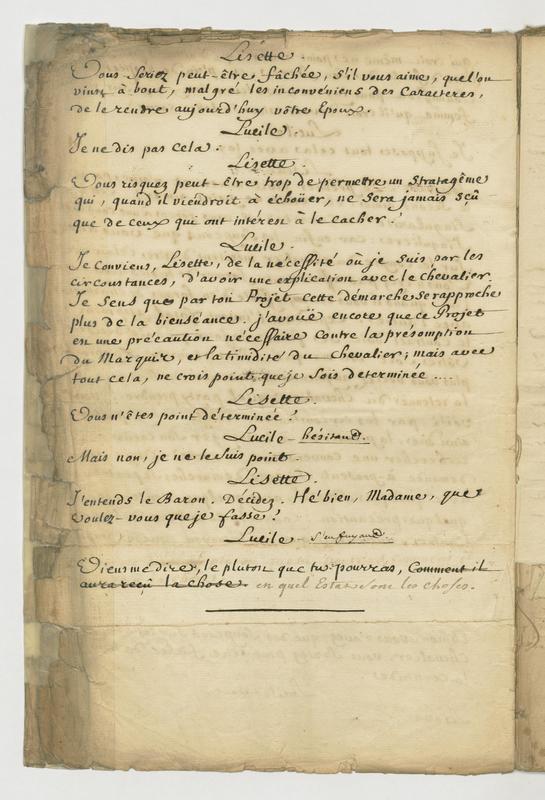 Lisette.
Vous seriez peut-être fâchée, s'il vous aime, quel'on
vint à bout, malgré les inconvéniens des Caracteres,
de le rendre aujourd'huy vôtre Epoux.
Lucile.
Je ne dis pas cela.
Lisette.
Vous risquez peut-être trop de permettre un Stratagême
qui, quand il viendroit à échoüer, ne sera jamais sçû
que de ceux qui ont intérest à le cacher.
Lucile.
Je conviens, Lisette, de la nécessité où je suis par les
circonstances, d'avoir une explication avec le chevalier.
Je sens que par ton Projet cette démarche se rapproche
plus de la bienséance. j'avoüe encore que ce Projet
est une précaution nécessaire contre la présomption
du Marquis, et la timidité du Chevalier; mais avec
tout cela, ne crois point que je sois determinée ....
Lisette.
Vous n'êtes point déterminée?
Lucile - hésitand.
Mais non, je ne le suis point.
Lisette.
J'entends le Baron. Décidez. Hé bien, Madame, que
voulez-vous que je fasse?
Lucile - s'enfuyand.
Viens me dire, le plutost que tu pourras, Comment il
aura reçu la chose. en quel Estat sont les choses.